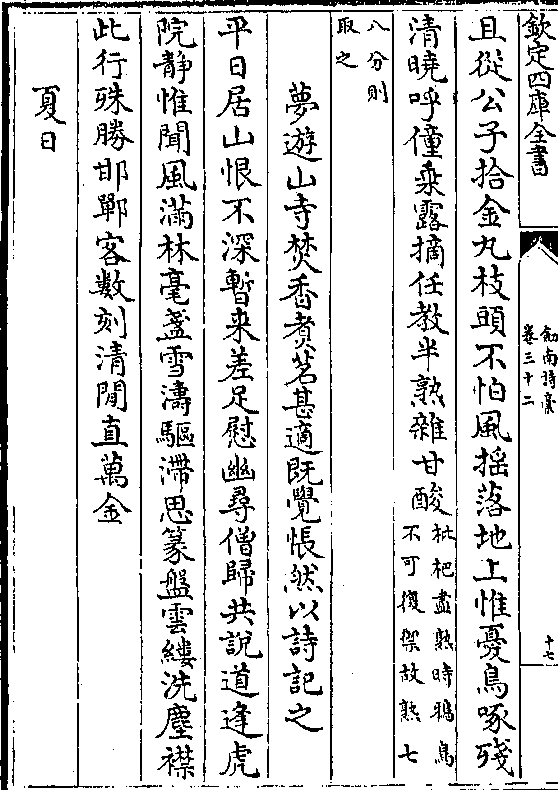 欽定四庫全書
劍南詩稾
卷三十二
十七
且從公子拾金丸枝頭不怕風揺落地上惟憂鳥啄殘
清曉呼僮乘露摘任教半熟雜甘酸枇杷盡熟時鴉鳥
不可復禦故熟七
八分則
取之
夢遊山寺焚香煑茗甚適既覺悵然以詩記之
平日居山恨不深暫來差足慰幽尋僧歸共說道逢虎
院静惟聞風滿林毫盞雪濤驅滯思篆盤雲縷洗塵襟
此行殊勝邯鄲客數刻清閒直萬金
夏日